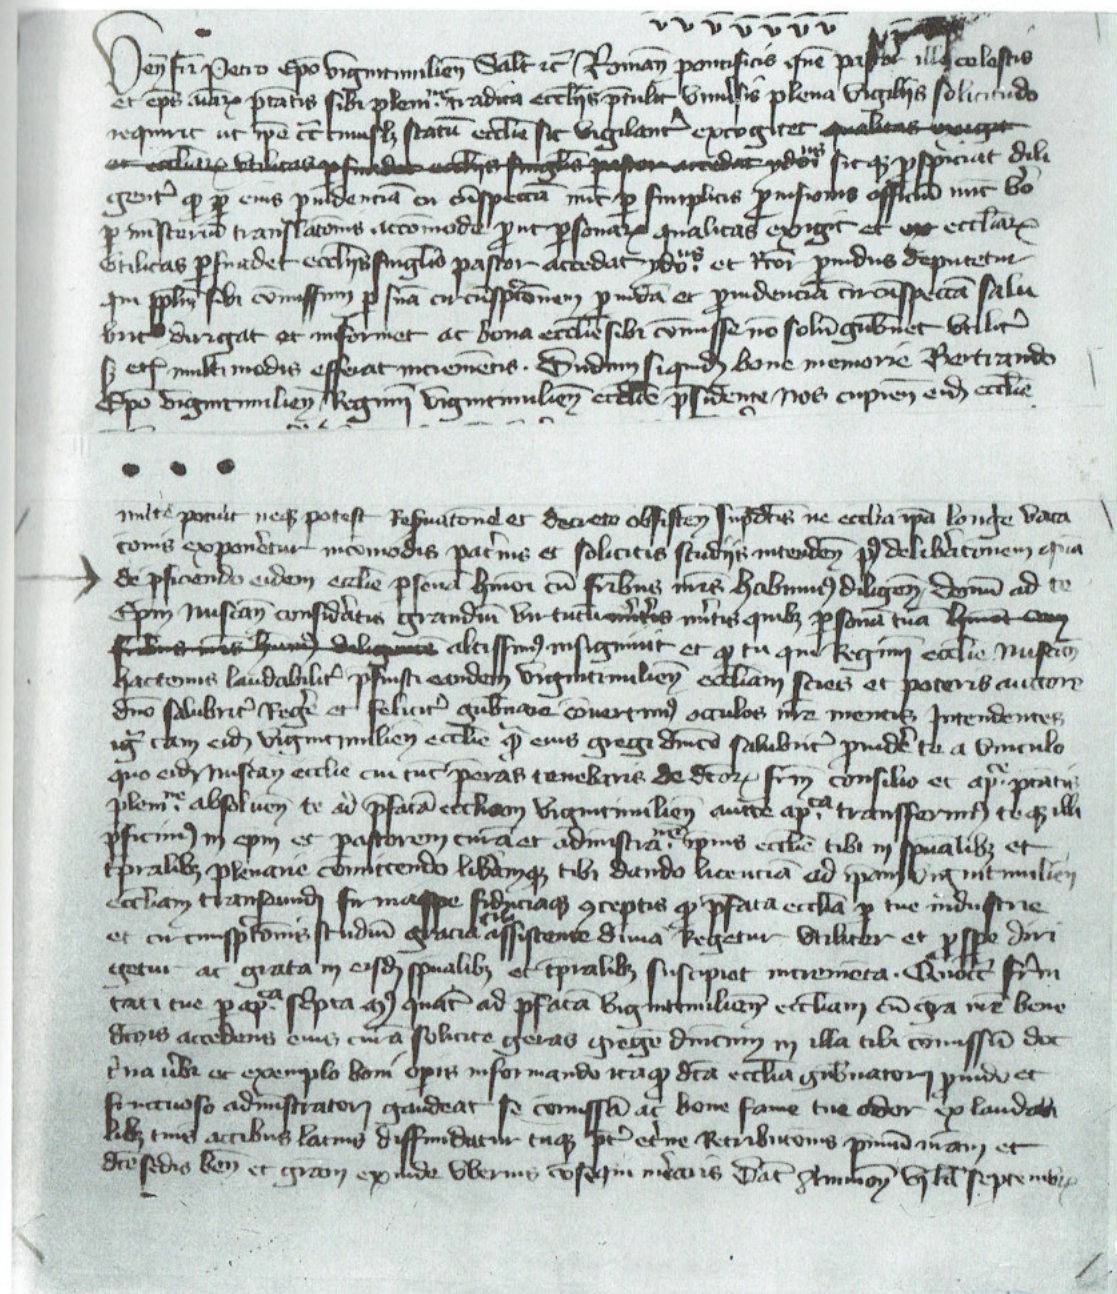 v v v v v v v
Ven fri Petro Epo vigintimilien Salt etc Roman pontificis quem pastor ille celestis
et eps aiarz ptatis sibi plenine tradita ecclijs ptulit univsis plena vigilijs solicitudo
requirit ut ipe circa cuiuslz statu ecclie sic vigilant excogitet qualitas exigit
et eccliarz utilitas psuadet ecclijs singlis pastor accedat ydoius sicqz pspiciat dili
gent q p eius pudencia circuspecta nuc p simplicis puisionis officiu nuc vo
p misteriu translatonis accomode put psonarz qualitas exigit et eccliarz
Utilitas psuadet ecclijs singlis pastor accedat ydous et Rcor puidus deputetur
qui pplm sibi comissum p sua circuspctonem puida et pudencia circuspecta salu
brit dirigat et informet ac bona ecclie sibi comisse no solu gubnet utilit
sz etia multimodis efferat incremetis. Dudum siquid bone memorie Bertrando
Epo vigintimilien Regimi vigintimilien ecclie psidente nos cupien eid ecclie
• • •
potuit neqz potest Resuatone et decreto obsisten supdctis ne ecclia ipa longe vaca
conis exponetur incomodis patnis et solicitis studijs intenden p deliberatinem qua
de pficiendo eidem ecclie psona hmoi cu fribus nris habuimus diligen demu ad te
Epm Nuscan considatis grandiu virtutu mitis quibz psona tua hmoi cum
fribus nris diligente altissimus insigniuit et q tu qui Regimi ecclie Nuscan
hactenus laudabilit pfuisti eandem vigintimilien eccliam scies et poteris auctore
dno salubrit Rege et felicit gubnare couertimus occulos nre mentis Intendentes
igr tam eid vigintimilien ecclie q eius gregi dnico salubrit puide te a vinculo
quo eid Nuscan ecclie cui tuc peras tenebaris de dcorz frm consilio et apce ptatis
plenine absoluen te ad pfata eccliam vigintimilien aucte apca transferimus teqz illi
pficimus in epm et pastorem cura et administrane ipius ecclie tibi in spualibz et
tpralibz plenarie comittendo libamqz tibi dando licencia ad ipam vigintimilien
eccliam transeundi firmaqz spe fiduciaqz cceptis q pfata ecclia p tue industrie
et circuspctonis studiu gracia tibi assistente diuia Regetur utiliter et pspe diri
getur ac grata in eisd spualibz et tpralibz suscipiet incremeta. Quocirca frni
tati tue p apca scripta mus quat ad pfata vigintimilien eccliam cu gra nre bene
dcois accedens eius cura solicite geras grege dnicum in illa tibi comissu doc
tina ubi et exemplo boni opis informando itaqz dca ecclia gubnatori puido et
fructuoso administratori gaudeat se comissa ac bone fame tue odor ex lauda
libz tuis actibus latius diffundatur tuqz pt etne Retributonis pmiu nram et
dce sedis ben et gram exinde uberius cosequi mearis Dat Auinion vij kl septembrz